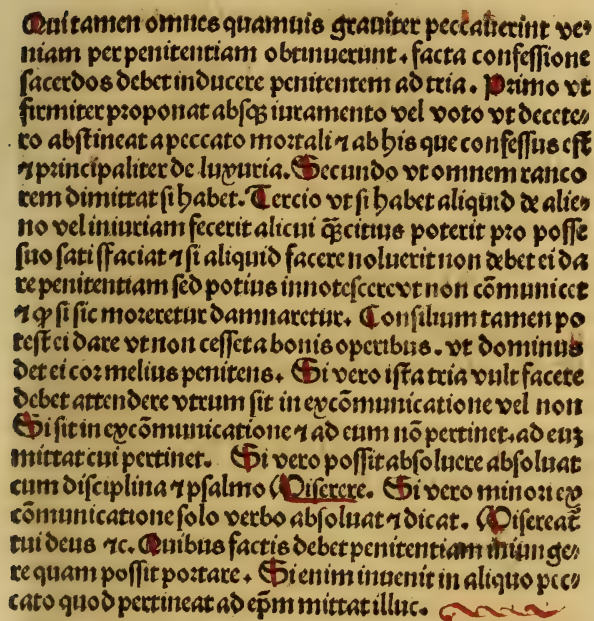 Qui tamen omnes quamuis grauiter peccauerint ve⸗
niam per penitentiam obtinuerunt. facta confeſſione
ſacerdos debet inducere penitentem ad tria. Primo vt
firmiter proponat abſqꝫ iuramento vel voto vt decete⸗
ro abſtineat a peccato mortali ⁊ ab his que confeſſus eſt
⁊ principaliter de luxuria. Secundo vt omnem ranco
rem dimittat ſi habet. Tercio vt ſi habet aliquid de alie⸗
no vel iniuriam fecerit alicui q̄ꝫcitius poterit pro poſſe
ſuo ſatiſfaciat ⁊ ſi aliquid facere noluerit non debet ei da
re penitentiam ſed potius innoteſcere vt non cōmunicet
⁊ ꝙ ſi ſic moreretur damnaretur. Conſilium tamen po
teſt ei dare vt non ceſſet a bonis operibus. vt dominus
det ei cor melius penitens. Si vero iſta tria vult facere
debet attendere vtrum ſit in excōmunicatione vel non
Si ſit in excōmunicatione ⁊ ad eum nō pertinet. ad euꝫ
mittat cui pertinet. Si vero poſſit abſoluere abſoluat
cum diſciplina ⁊ pſalmo Miſerere. Si vero minori ex
cōmunicatione ſolo verbo abſoluat ⁊ dicat. Miſereat̄
tui deus ⁊c. Quibus factis debet penitentiam iniunge⸗
re quam poſſit portare. Si enim inuenit in aliquo pec⸗
cato quod pertineat ad ep̄m mittat illuc.